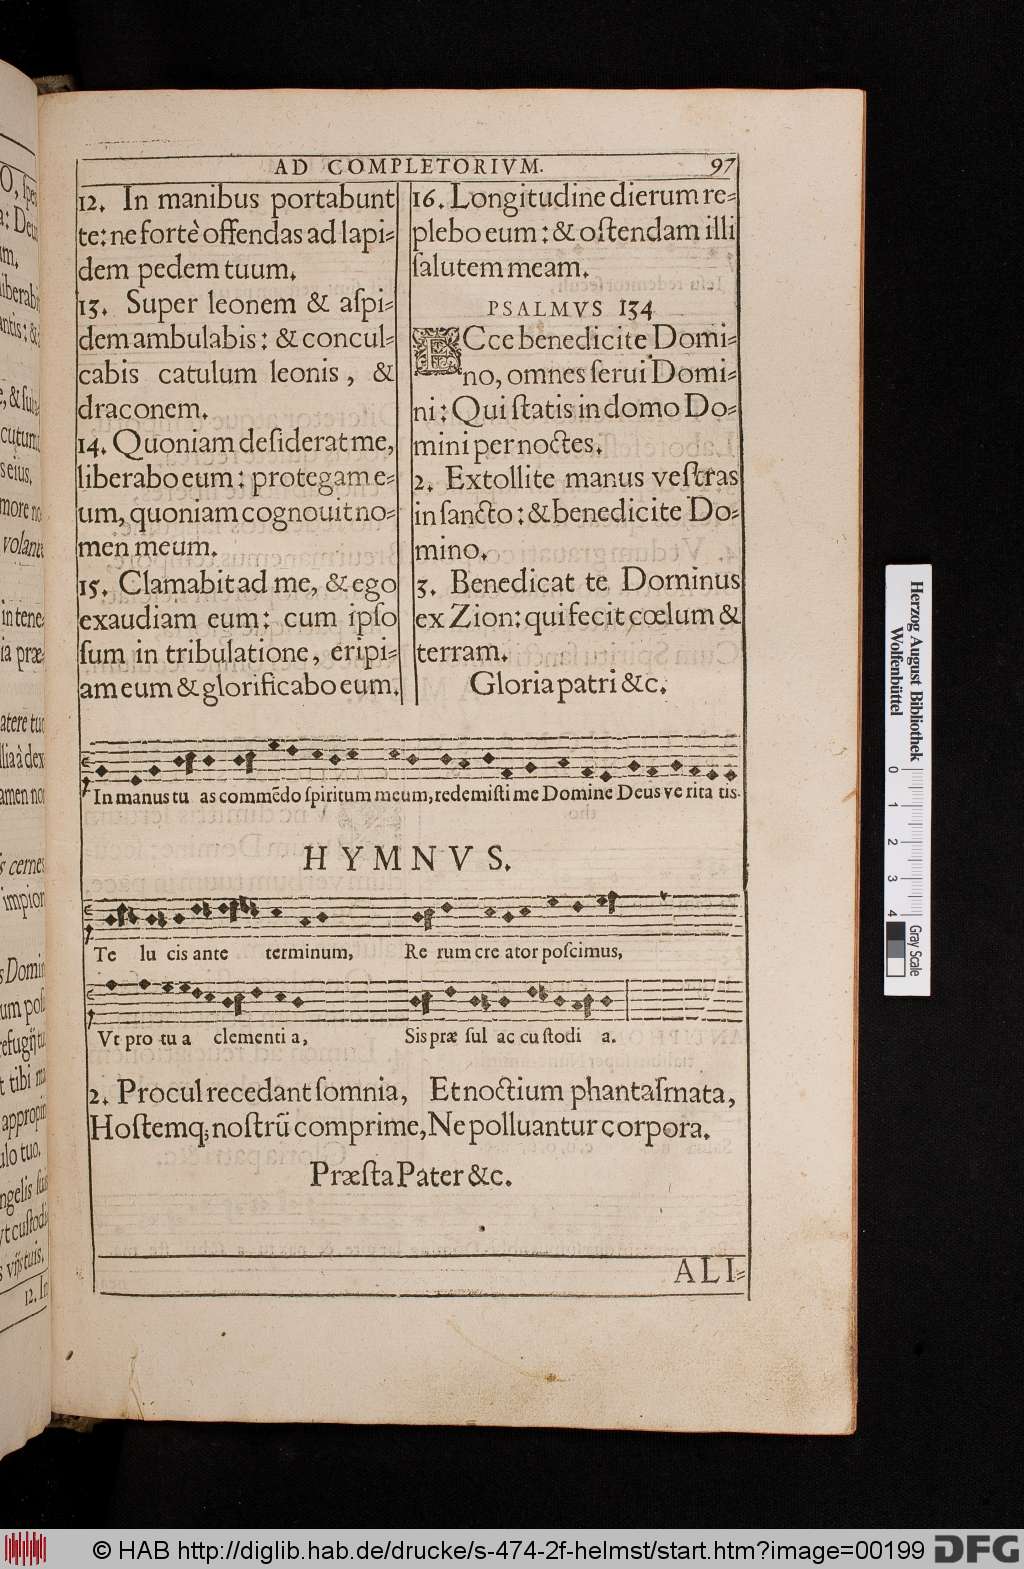 AD COMPLETORIVM. 97
12. In manibus portabunt
te: ne fortè offendas ad lapi-
dem pedem tuum.
13. Super leonem & aſpi-
dem ambulabis: & concul-
cabis catulum leonis, &
draconem.
14. Quoniam deſiderat me,
liberabo eum: protegam e-
um, quoniam cognouit no-
men meum.
15. Clamabit ad me, & ego
exaudiam eum: cum ipſo
ſum in tribulatione, eripi-
am eum & glorificabo eum.
16. Longitudine dierum re-
plebo eum: & oſtendam illi
ſalutem meam.
PSALMVS 134
ECce benedicite Domi-
no, omnes ſerui Domi-
ni: Qui ſtatis in domo Do-
mini per noctes.
2. Extollite manus veſtras
in ſancto: & benedicite Do-
mino.
3. Benedicat te Dominus
ex Zion: qui fecit cœlum &
terram.
Gloria patri &c.
In manus tu as commēdo ſpiritum meum, redemiſti me Domine Deus ve rita tis.
HYMNVS.
Te lu cis ante terminum, Re rum cre ator poſcimus,
Vt pro tu a clementi a, Sis præ ſul ac cu ſtodi a.
2. Procul recedant ſomnia, Et noctium phantaſmata,
Hoſtemq; noſtrū comprime, Ne polluantur corpora.
Præſta Pater &c.
ALI-
O, ſpe
a: Deu
um.
liberabi
antis: &
e, & ſub
cutum
s eius.
more no
volante
in tene-
ia præ-
latere tuo
llia à dex
amen no
s cernes
impior
s Domin
um poſu
refugiū tu
t tibi ma
appropin
ulo tuo.
ngelis ſuis
vt cuſtodi
s vijs tuis.
12. In
Herzog August Bibliothek
Wolfenbüttel
0 1 2 3 4
Gray Scale
© HAB http://diglib.hab.de/drucke/s-474-2f-helmst/start.htm?image=00199 DFG